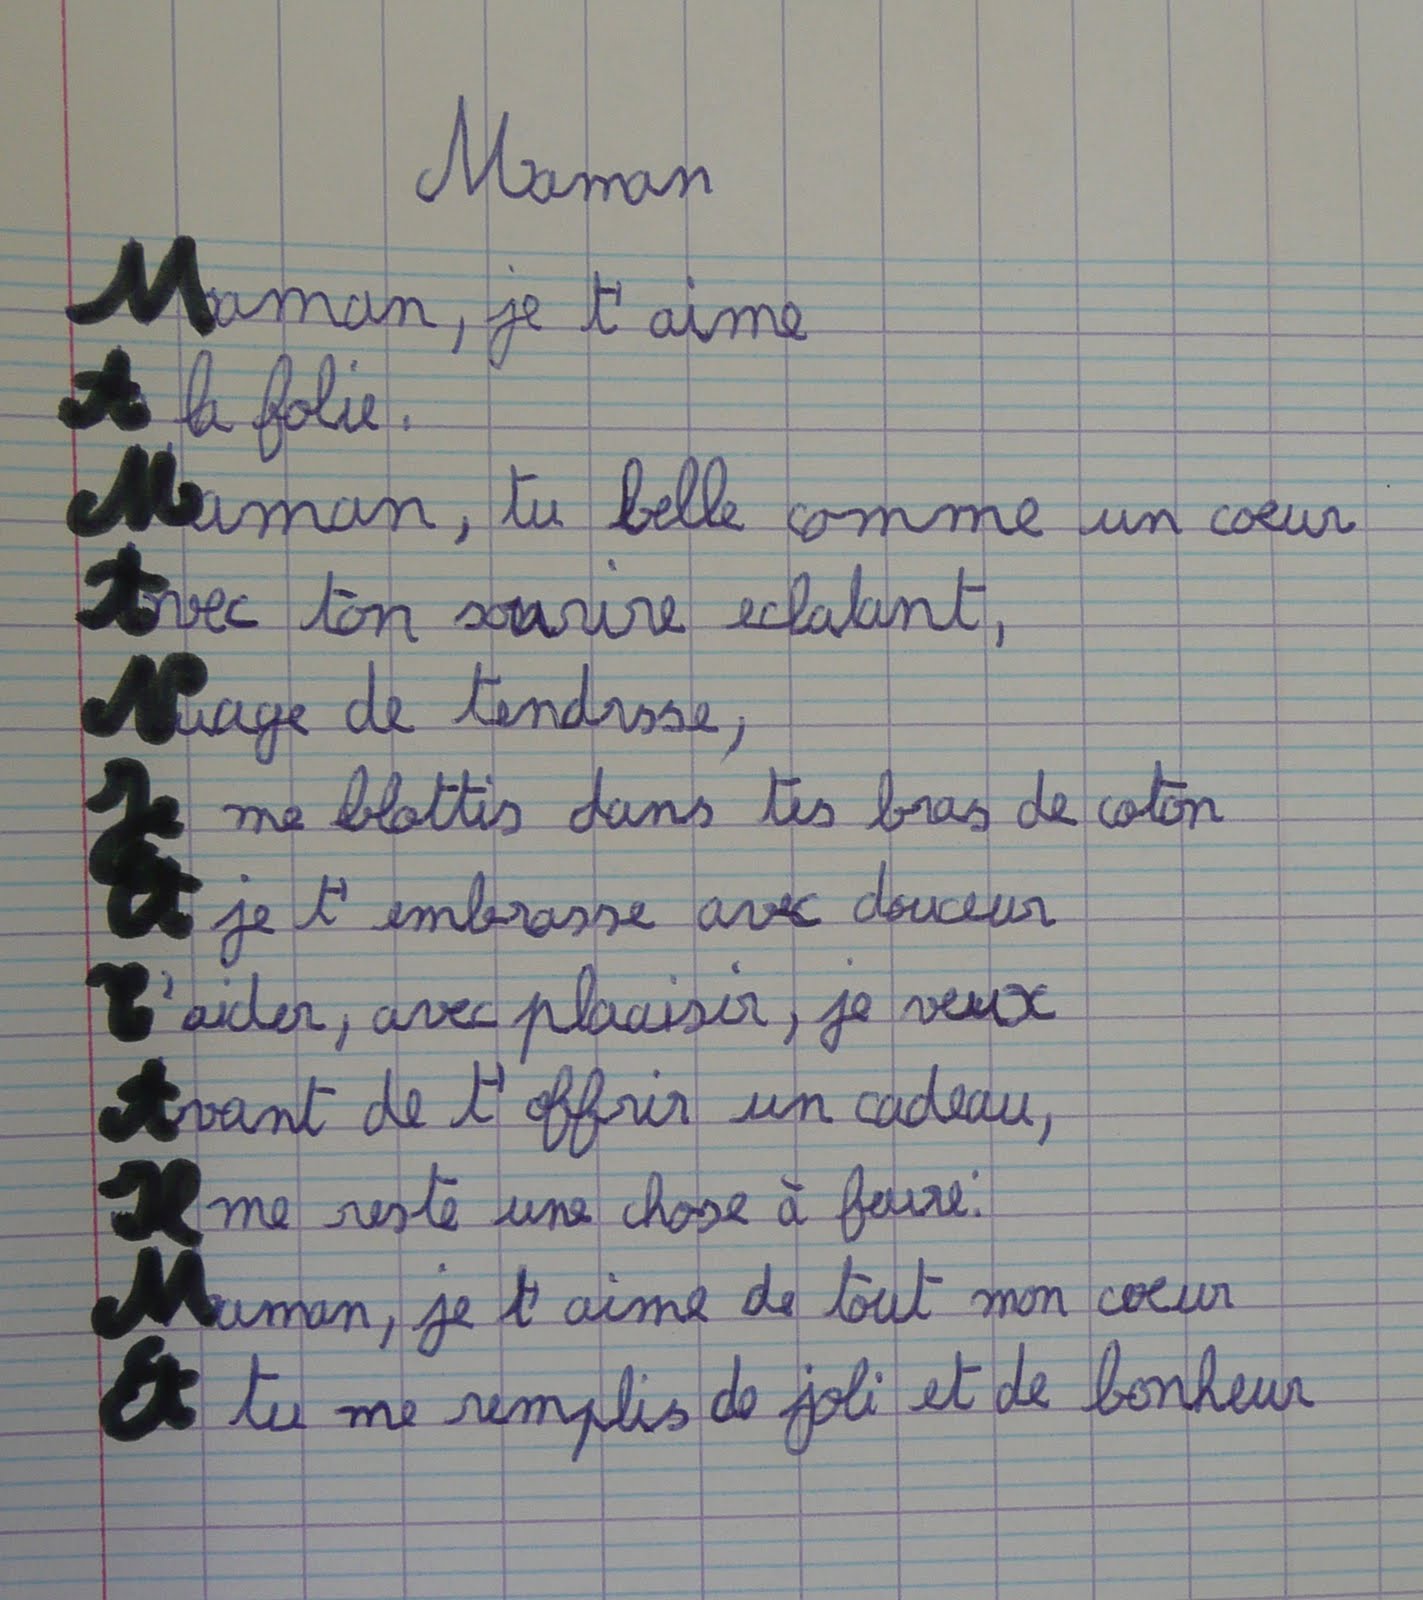 Maman
Maman, je t'aime
A la folie.
Maman, tu belle comme un coeur
Avec ton sourire eclatant,
Nuage de tendresse,
Je me blottis dans tes bras de coton
Et je t'embrasse avec douceur
T'aider, avec plaaisir, je veux
Avant de t'offrir un cadeau,
Il me reste une chose à faire:
Maman, je t'aime de tout mon coeur
Et tu me remplis de joli et de bonheur